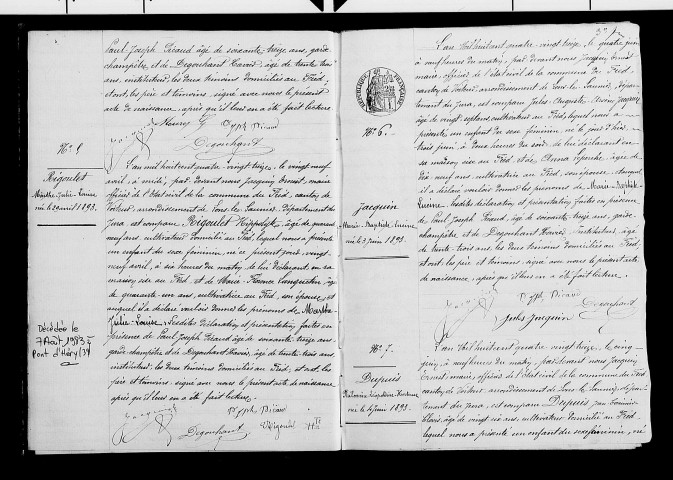 Paul Joseph Picaud âgé de soixante-treize ans, garde
champêtre et de Degouhant Xavier, âgé de trente trois
ans, instituteur, les deux témoins domiciliés au Fied,
et ont, les père et témoins, signé avec nous le présent
acte de naissance, après qu'il leur en a été fait lecture.
Degouhant
N° 5
Rigoulet
Marthe Julie Louise
née le 29 avril 1893.
L'an mil huit cent quatre-vingt treize, le vingt neuf
avril, à midi, par devant nous Jacquin Ernest, maire
officier de l'état civil de la commune du Fied, canton de
Voiteur arrondissement de Lons le Saunier, département du
Jura est comparu Rigoulet Hippolyte, âgé de quarante
neuf ans, cultivateur domicilié au Fied, lequel nous a présenté
un enfant du sexe féminin, né ce présent jour, vingt-
neuf avril, à six heures du matin, de lui déclarant, en sa
maison, sise au Fied et de Marie France
de quarante-un ans, cultivatrice au Fied, son épouse, et
auquel il a déclaré vouloir donner les prénoms de Marthe-
Julie-Louise, lesdites déclaration et présentation faites en
présence de Paul Joseph Picaud âgé de soixante treize ans,
garde champêtre et Degouhant Xavier, âgé de trente trois ans
instituteur, les deux témoins domiciliés au Fied, et ont, les
père et témoins, signé avec nous le présent acte de naissance
après qu'il leur en a été fait lecture.
Degouhant Rigoulet H
Décédée le
7 Août 1983 à
Pont d'Héry (39)
RÉPUBLIQUE FRANÇAISE
N° 6.
Jacquin
Marie-Baptiste-Lucine
née le 3 juin 1893.
L'an mil huit cent quatre-vingt treize, le quatre juin
à neuf heures du matin, par devant nous Jacquin Ernest
maire, officier de l'état civil de la commune du Fied,
canton de Voiteur arrondissement de Lons-le-Saunier, dépar-
tement du Jura, est comparu Jules Auguste Jacquin
âgé de vingt sept ans, cultivateur au Fied, lequel nous a
présenté un enfant du sexe féminin, né le jour d'hier,
trois juin à deux heures du soir, de lui déclarant en
sa maison sise au Fied et de Anna âgée de
ans, cultivatrice au Fied, son épouse, auquel
il a déclaré vouloir donner les prénoms de Marie-Baptiste
Lucine, lesdites déclaration et présentation faites en présence
de Paul Joseph Picaud, âgé de soixante treize ans, garde
champêtre et de Degouhant Xavier instituteur, âgé
de trente-trois ans, les deux témoins domiciliés au Fied
et ont les père et témoins signé avec nous le présent acte
de naissance, après qu'il leur en a été fait lecture.
Degouhant
Jules Jacquin
N° 7.
Dupuis
née le 4 juin 1893.
L'an mil huit cent quatre-vingt treize, le cinq
juin, à neuf heures du matin, par devant nous Jacquin
Ernest maire, officier de l'état civil de la commune du Fied
canton de Voiteur arrondissement de Lons le Saunier, dépar-
tement du Jura, est comparu Dupuis
âgé de vingt six ans, cultivateur domicilié au Fied
lequel nous a présenté un enfant du sexe féminin, né